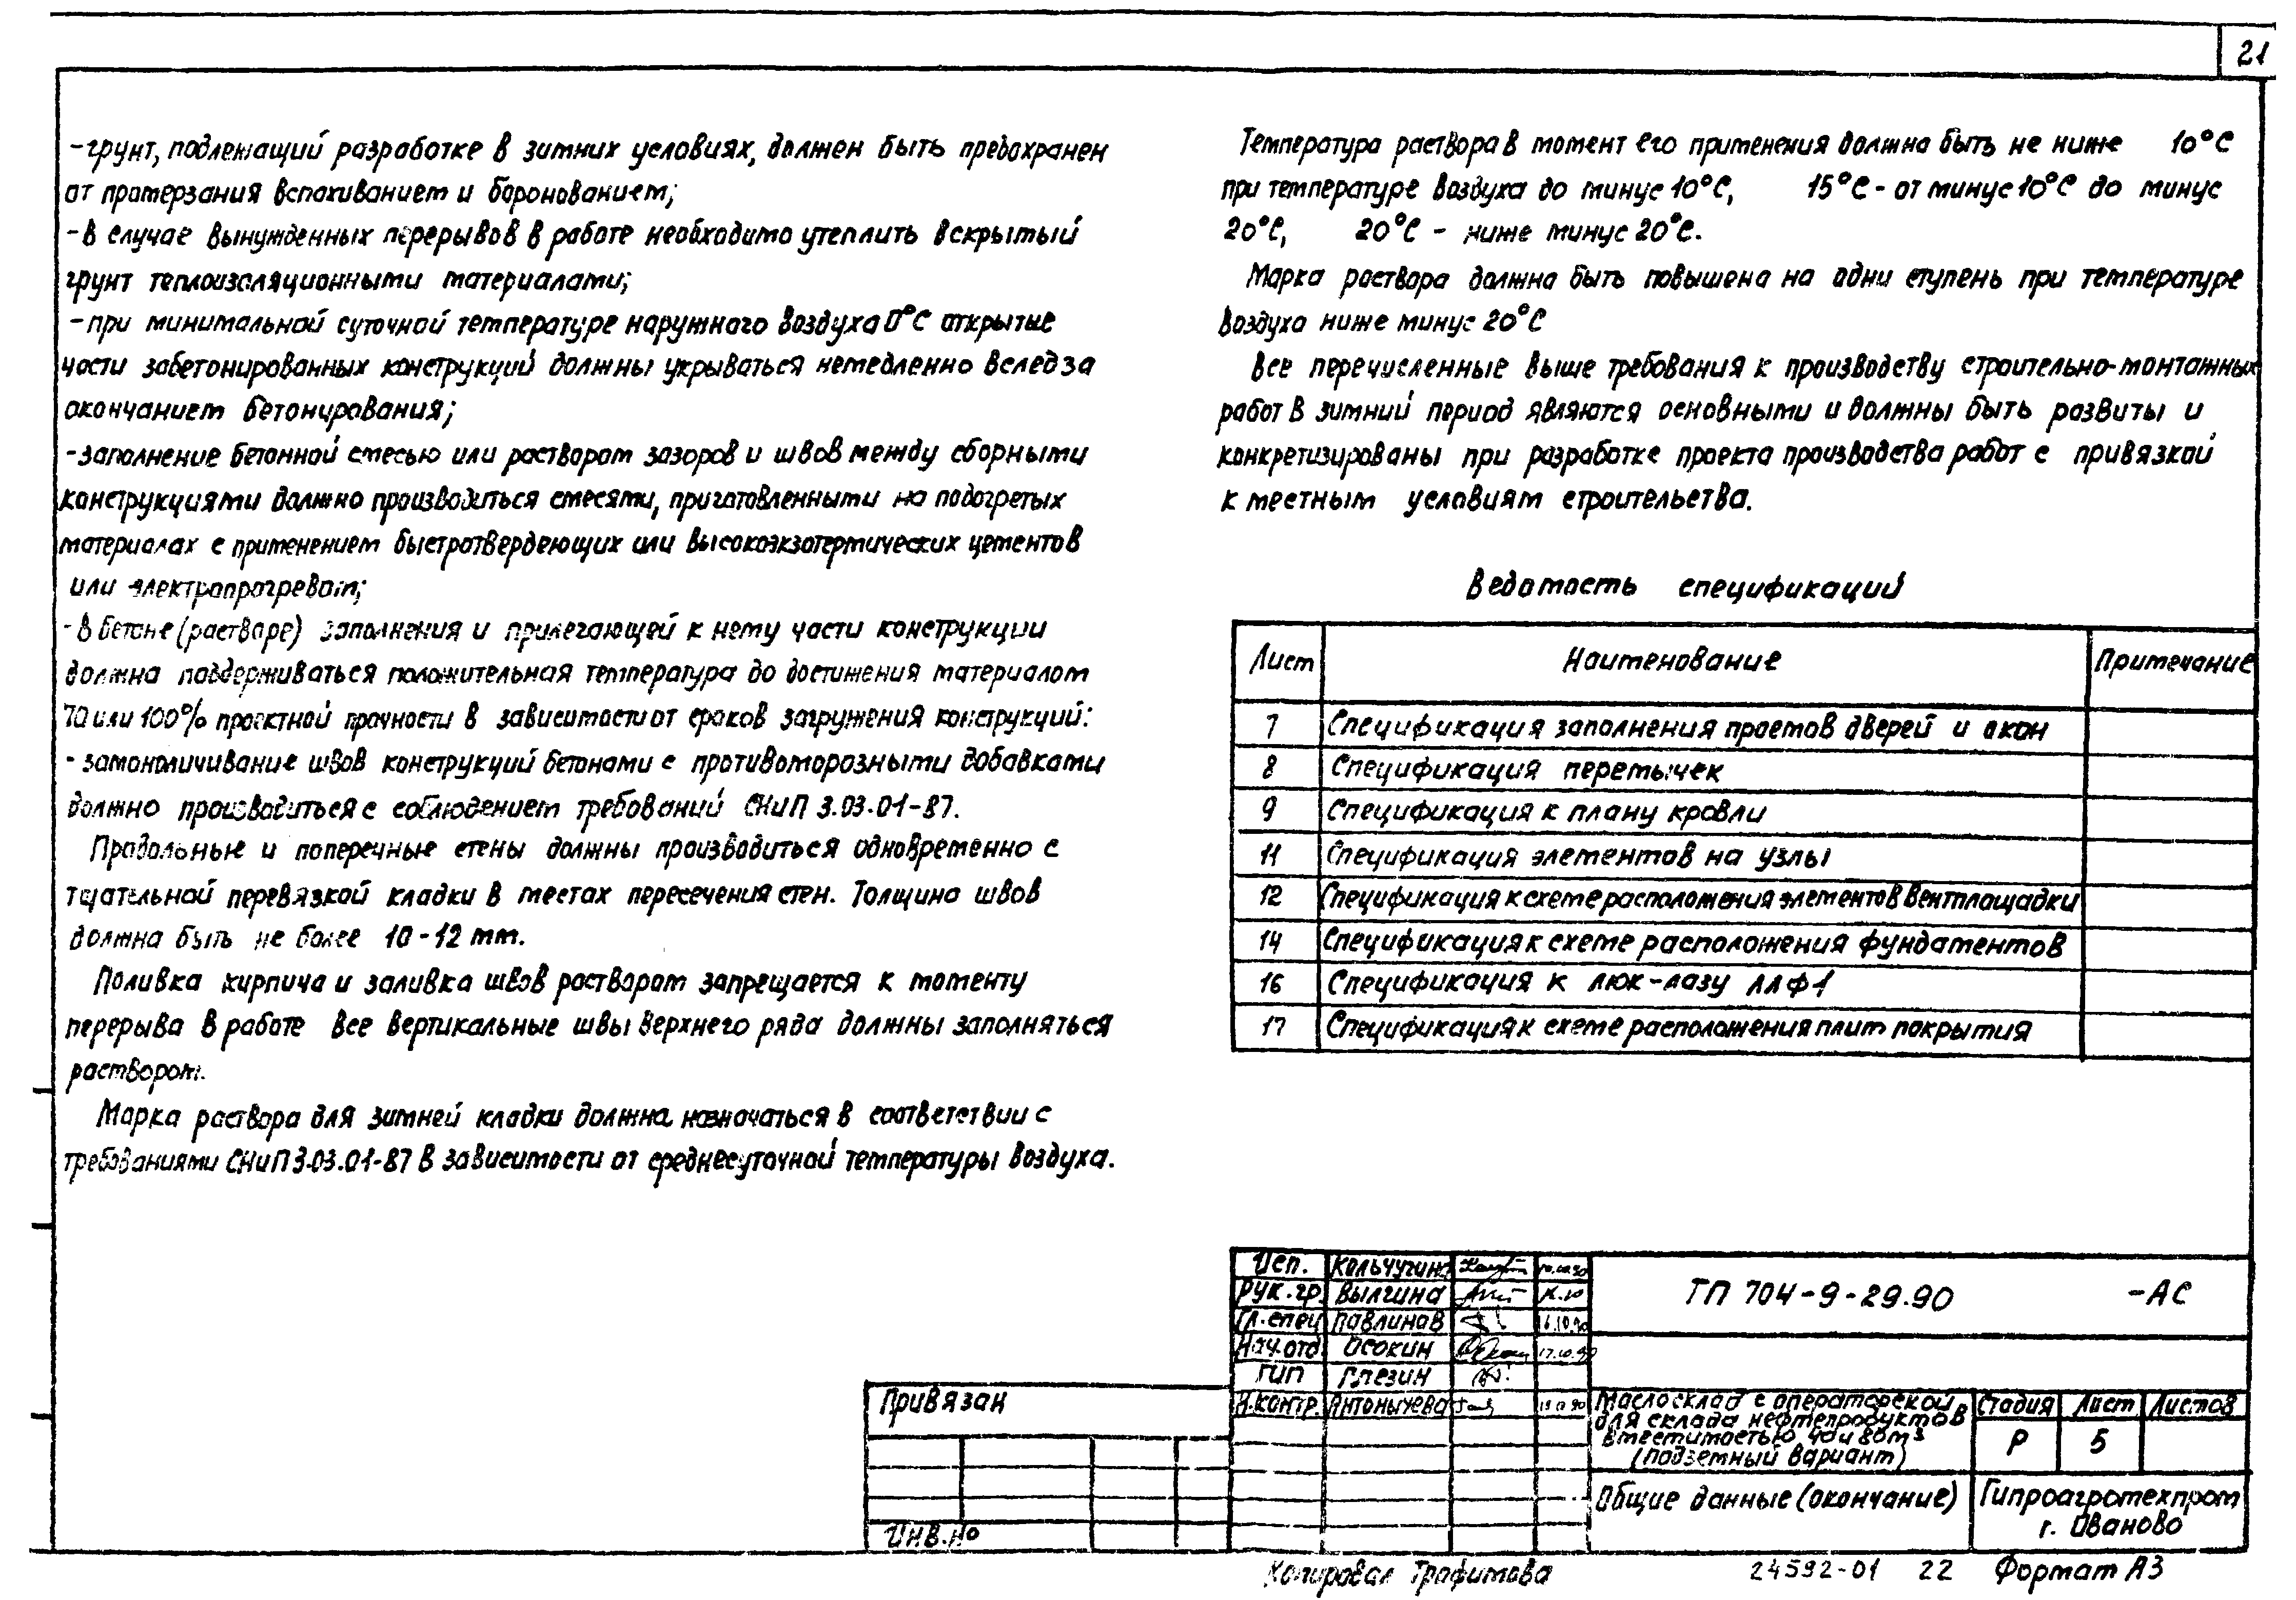 21
-грунт, подлежащий разработке в зимних условиях, должен быть предохранен
от промерзания вспахиванием и боронованием;
-в случае вынужденных перерывов в работе необходимо утеплить вскрытый
грунт теплоизоляционными материалами;
-при минимальной суточной температуре наружного воздуха 0°С открытые
части забетонированных конструкций должны укрываться немедленно вслед за
окончанием бетонирования;
-заполнение бетонной смесью или раствором зазоров и швов между сборными
конструкциями должно производиться смесями, приготовленными на подогретых
материалах с применением быстротвердеющих или высокоэкзотермических цементов
или электропрогревом;
-в бетоне (растворе) заполнения и прилегающей к нему части конструкции
должна поддерживаться положительная температура до достижения материалом
70 или 100% проектной прочности в зависимости от сроков загружения конструкций:
-замоноличивание швов конструкций бетонами с противоморозными добавками
должно производиться с соблюдением требований СНиП 3.03.01-87.
Продольные и поперечные стены должны производиться одновременно с
тщательной перевязкой кладки в местах пересечения стен. Толщина швов
должна быть не более 10-12 мм.
Поливка кирпича и заливка швов раствором запрещается к моменту
перерыва в работе все вертикальные швы верхнего ряда должны заполняться
раствором.
Марка раствора для зимней кладки должна назначаться в соответствии с
требованиями СНиП 3.03.01-87 в зависимости от среднесуточной температуры воздуха.
Температура раствора в момент его применения должна быть не ниже 10°С
при температуре воздуха до минус 10°С, 15°С - от минус 10°С до минус
20°С, 20°С - ниже минус 20°С.
Марка раствора должна быть повышена на одни ступень при температуре
воздуха ниже минус 20°С
Все перечисленные выше требования к производству строительно-монтажных
работ в зимний период являются основными и должны быть развиты и
конкретизированы при разработке проекта производства работ с привязкой
к местным условиям строительства.
Ведомость спецификаций
Лист Наименование Примечание
7 Спецификация заполнения проемов дверей и окон
8 Спецификация перемычек
9 Спецификация к плану кровли
11 Спецификация элементов на узлы
12 Спецификация к схеме расположения элементов вентплощадки
14 Спецификация к схеме расположения фундаментов
16 Спецификация к люк-лазу ЛЛФ1
17 Спецификация к схеме расположения плит покрытия
Исп. Кольчугина
Рук.гр. Вылгина
Гл.спец Павлинов 16.10.90
Нач.отд. Осокин 17.10.90
ГИП Глезин
Н.контр. Антонычева
ТП 704-9-29.90 -АС
Маслосклад с операторской
для склада нефтепродуктов
вместимостью 40 и 80 м³
(подземный вариант)
Стадия Лист Листов
Р 5
Общие данные (окончание)
Гипроагротехпром
г. Иваново
Привязан
Инв.№
Копировал Трофимова 24592-01 22 Формат А3